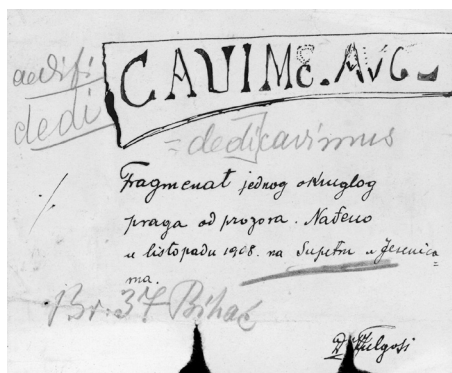 aedifi
dedi
CAVIMS. AVG
=dedicavimus
Fragmenat jednog okruglog
praga od prozora. Nađeno
u listopadu 1908. na Supetru u Jesenica=
ma.
Br. 37 Bihać
Fulgosi